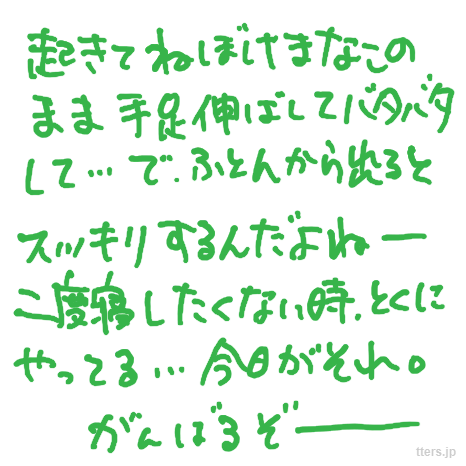 起きてねぼけまなこの
まま手足伸ばしてバタバタ
して…で、ふとんから出ると
スッキリするんだよねー
二度寝したくない時、とくに
やってる…今日がそれ。
がんばるぞー
tters.jp